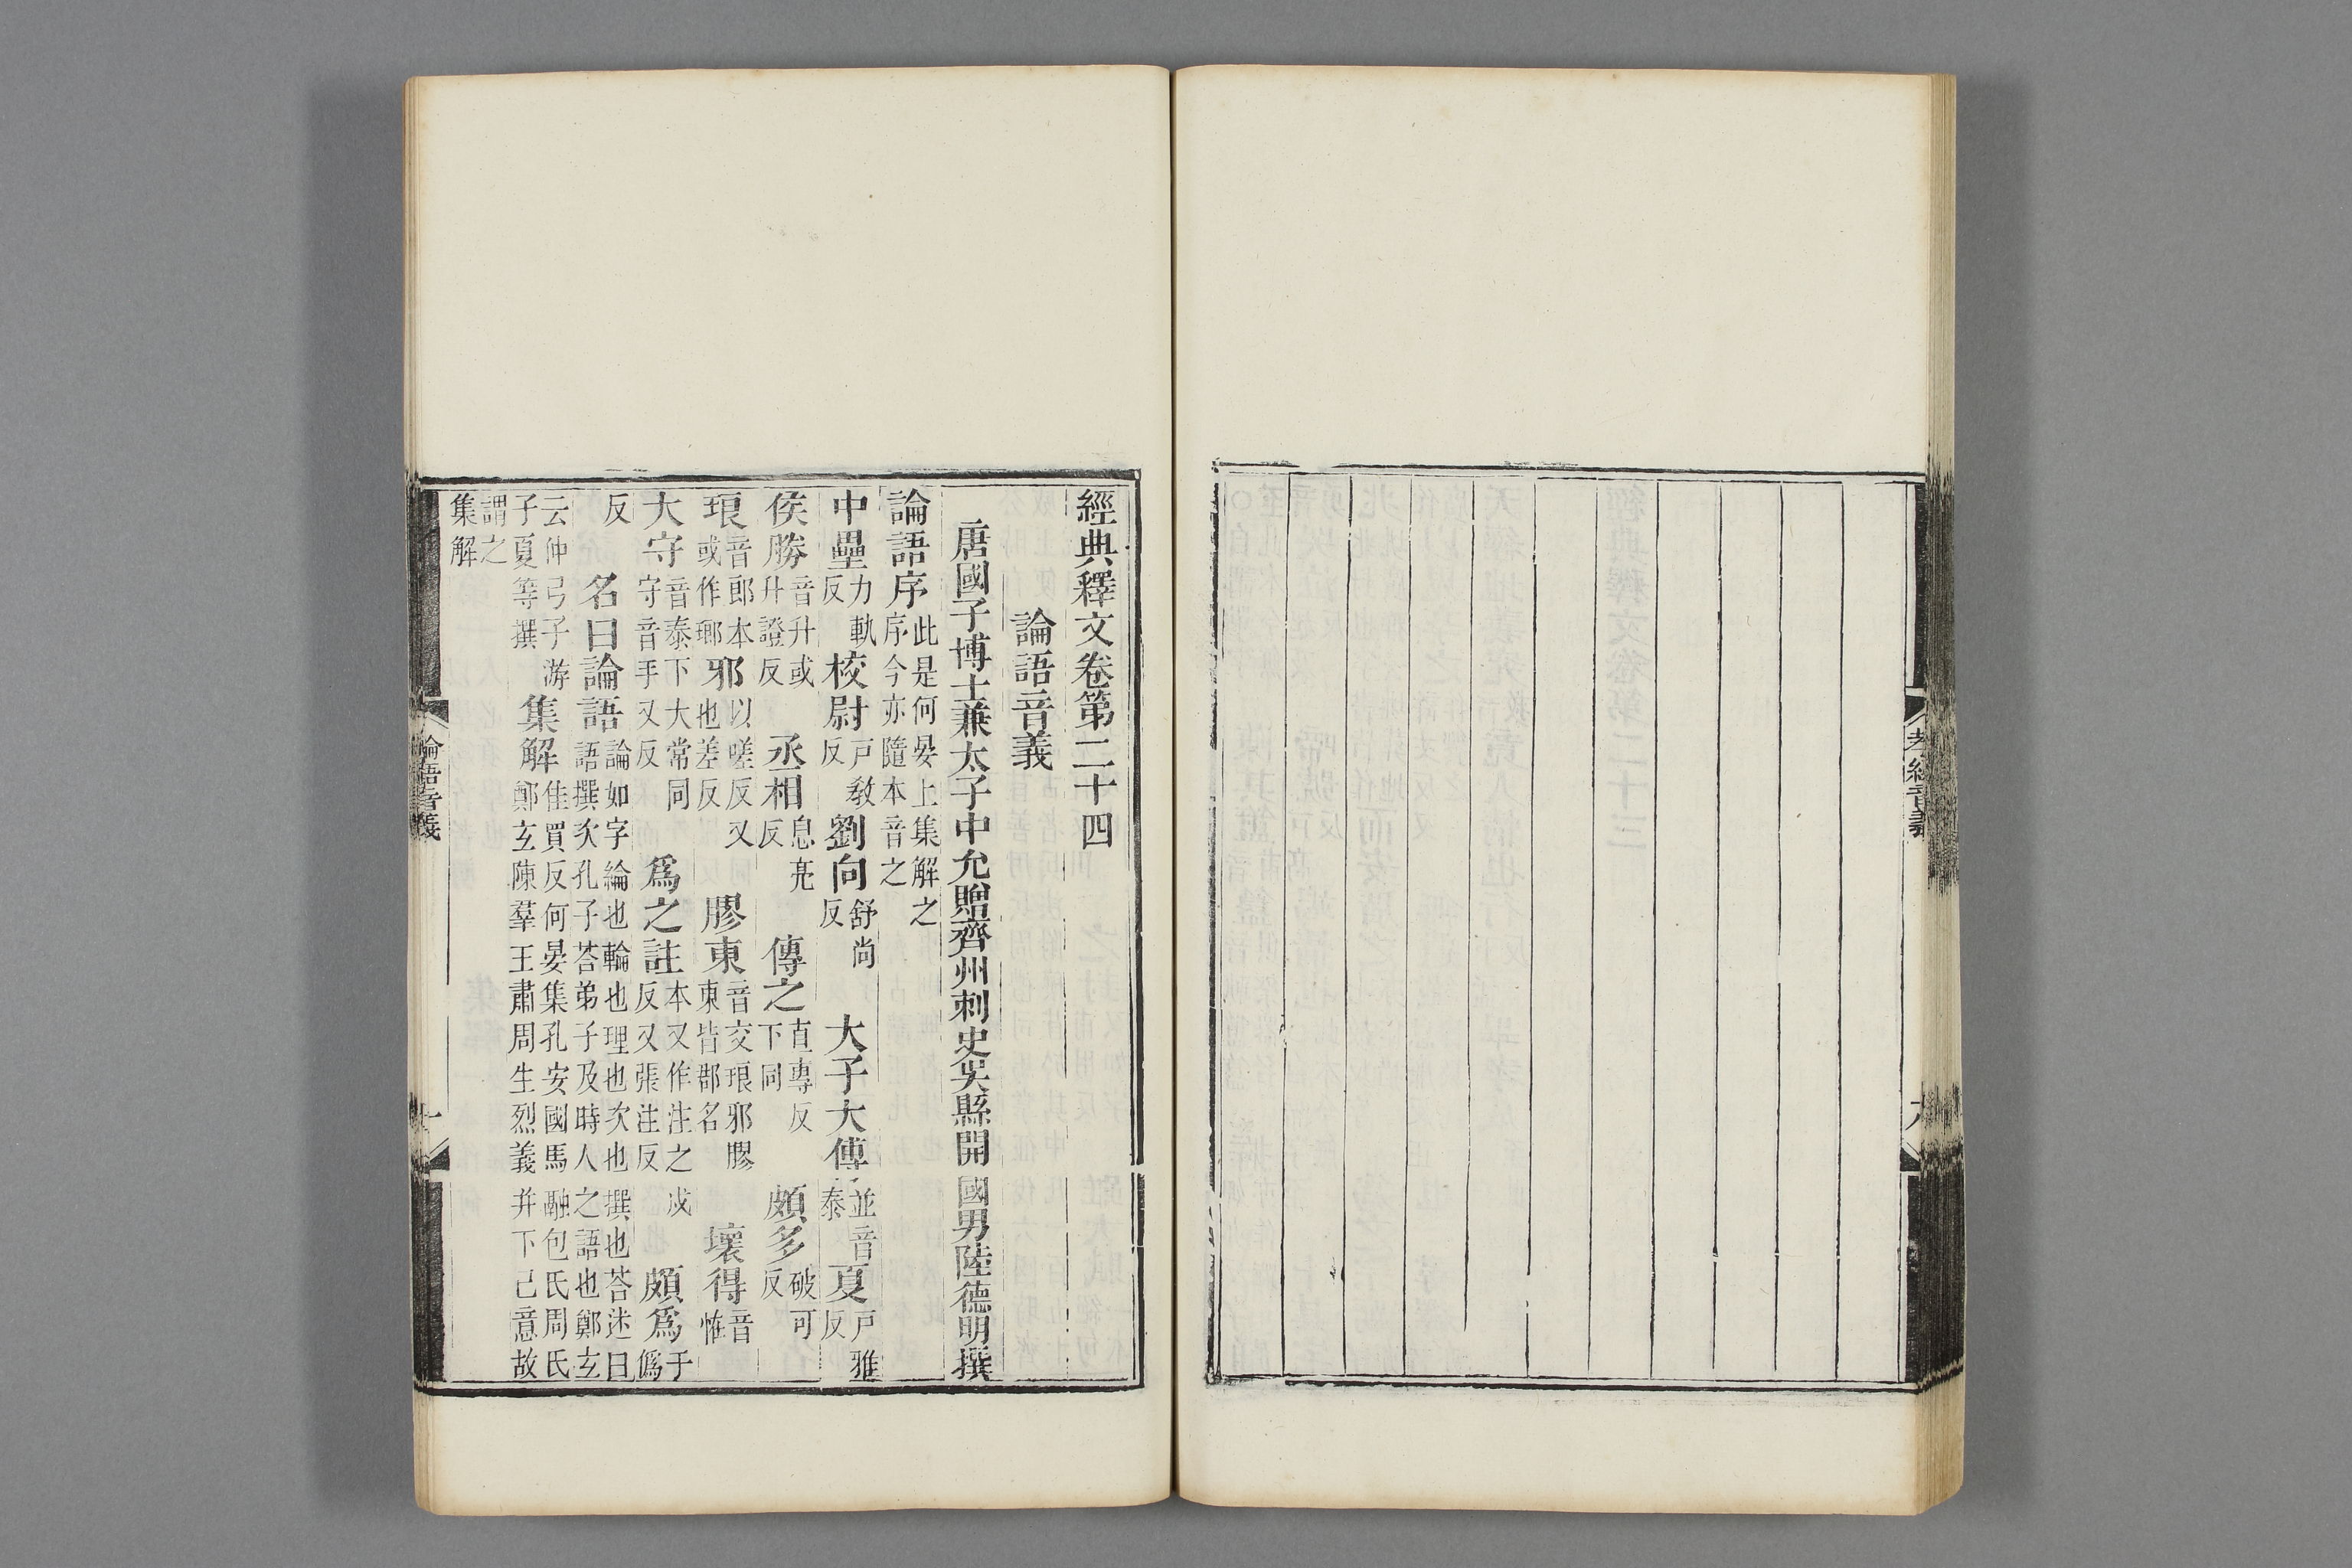 孝經音義
九
經典釋文卷第二十四
論語音義
唐國子博士兼太子中允贈齊州刺史吳縣開國男陸德明撰
論語序此是何晏上集解之序今亦隨本音之
中壘力軌反校尉戶教反劉向舒尚反大子大傅並音泰夏戶雅反
侯勝音升或升證反丞相息亮反傳之直專反下同頗多破可反
琅音郎本或作瑯邪以嗟反又也差反膠東音交琅邪膠東皆郡名壞得音恠
大守音泰下大常同守音手又反爲之註本又作注之戍反又張注反頗爲于僞
反名曰論語論如字綸也輪也理也次也撰也荅述曰語撰次孔子荅弟子及時人之語也鄭玄
云仲弓子游子夏等撰集解佳買反何晏集孔安國馬融包氏周氏鄭玄陳羣王肅周生烈義并下己意故
謂之集解
論語音義
一